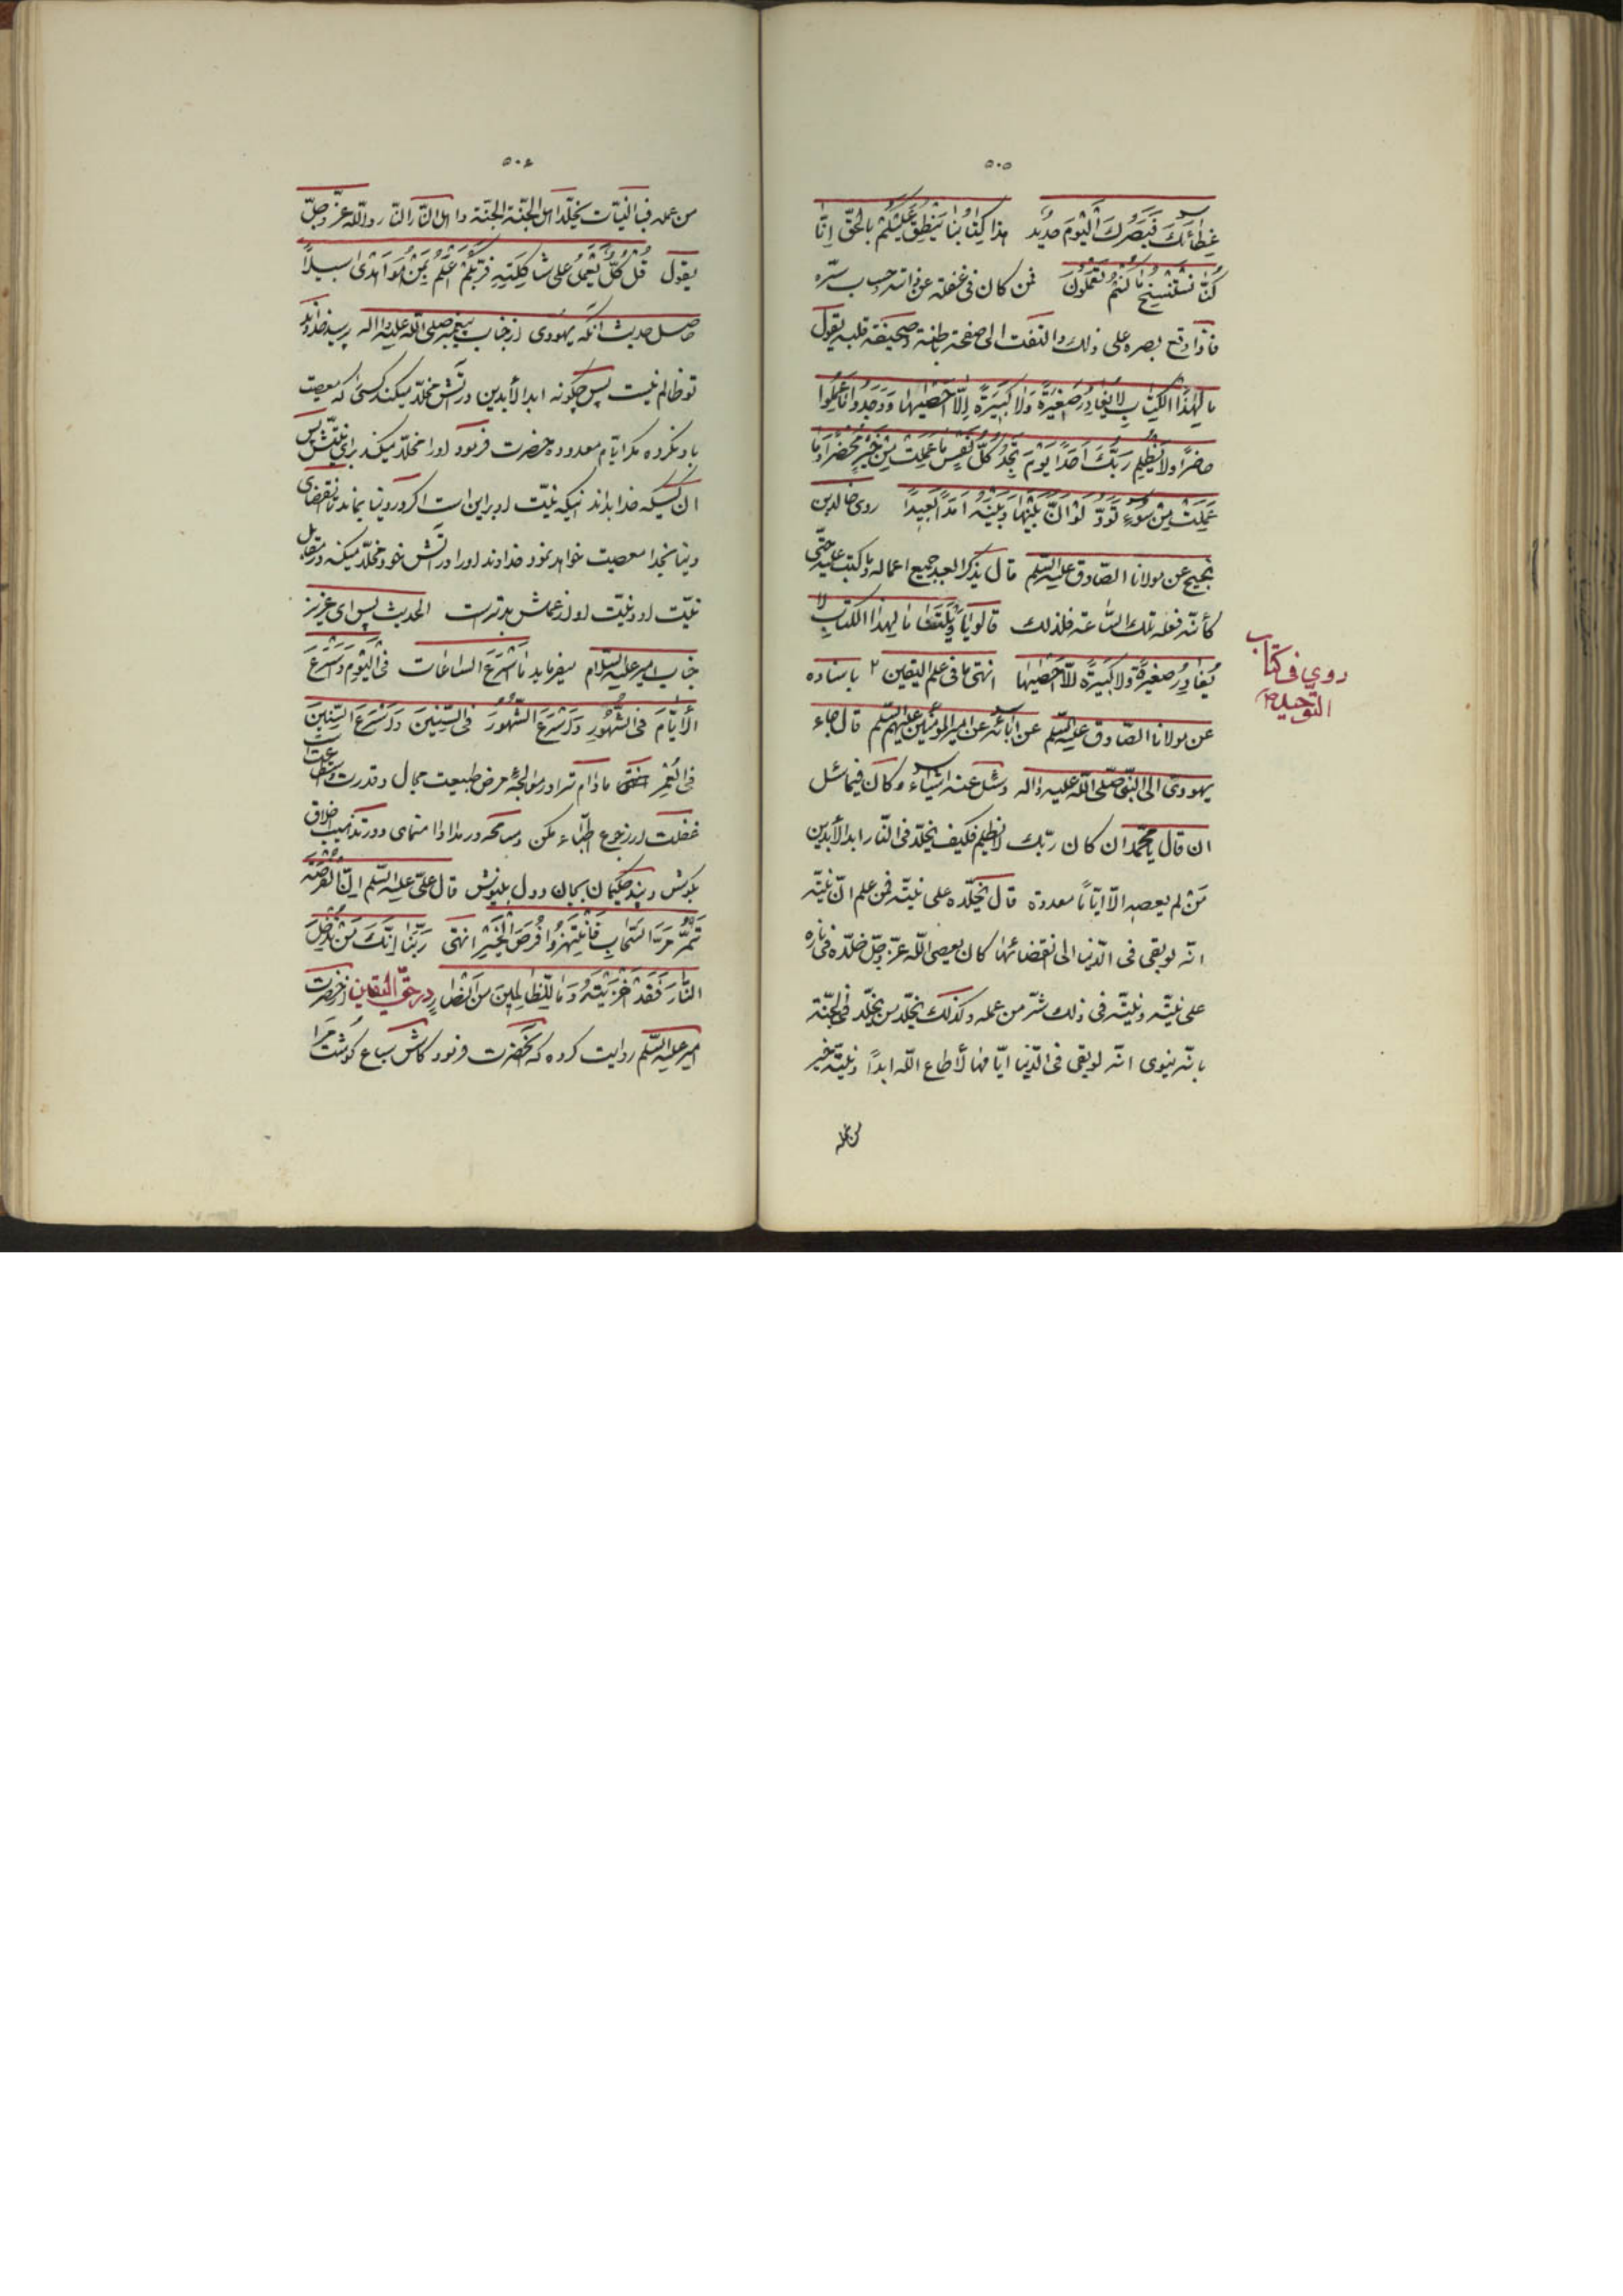 ٥٠٥
غِطائَكَ فَبَصَرُكَ الْيَوْمَ حَدِيد هذا كِتابُنا يَنْطِقُ عَلَيْكُمْ بِالْحَقِّ اِنّا
كُنّا نَسْتَنْسِخُ ما كُنْتُمْ تَعْمَلُونَ فمن كان فى غفلة عن ذاته وحساب سرّه
فاذا وقع بصره على ذلك والتفت الى صفحة باطنه وصحيفة قلبه يقول
ما لِهذَا الْكِتابِ لا يُغادِرُ صَغِيرَةً وَلا كَبِيرَةً اِلّا اَحْصيها وَوَجَدُوا ما عَمِلُوا
حاضِرًا ولا يَظْلِمُ رَبُّكَ اَحَدًا يَوْمَ تَجِدُ كُلُّ نَفْسٍ ما عَمِلَتْ مِنْ خَيْرٍ مُحْضَرًا وَما
عَمِلَتْ مِنْ سُوءٍ تَوَدُّ لَوْ اَنَّ بَيْنَها وَبَيْنَهُ اَمَدًا بَعِيدًا روى خالد بن
نجيح عن مولانا الصّادق عليه السّلم قال يذكر العبد جميع اعماله وما كتب عليه حتّى
كأنّه فعله تلك السّاعة فلذلك قالوا يا وَيْلَتَنا ما لِهذَا الْكِتابِ لا
يُغادِرُ صَغيرَةً ولا كَبيرَةً اِلّا اَحْصيها انتهى ما فى علم اليقين ٢ باسناده
روي في كتاب
التوحيد ص
عن مولانا الصّادق عليه السّلم عن آبائه عن امير المؤمنين عليهم السّلم قال جاء
يهودى الى النّبى صلّى الله عليه واله وسئل عنه اشياء وكان فيما سئل
ان قال يا محمّد ان كان ربّك لا يظلم فكيف يخلّد فى النّار ابد الأبدين
مَنْ لم يعصه الّا ايّامًا معدودة قال يخلّده على نيّته فمن علم انّ نيّته
انّه لو بقى فى الدّنيا الى انقضائها كان يعصى الله عزّ وجلّ خلّده فى ناره
على نيّته ونيّته فى ذلك شرّ من عمله وكذلك يخلّد من يخلّد فى الجنّة
بانّه ينوى انّه لو بقى فى الدّنيا ايّامها لأطاع الله ابدًا ونيّته خير
من عمله
٥٠٦
من عمله فبالنيّات يخلّد اهل الجنّة الجنّة واهل النّار النّار والله عزّ وجلّ
يقول قُلْ كُلٌّ يَعْمَلُ على شاكِلَتِهِ فَرَبُّكُمْ اَعْلَمُ بِمَنْ هُوَ اَهْدى سبيلًا
حاصل حديث انكه يهودى از جناب پيغمبر صلى الله عليه واله پرسيد خداوند
تو ظالم نيست پس چگونه ابد الأبدين در آتش مخلّد ميكند كسى را كه معصيت
باو نكرده مگر ايّام معدوده حضرت فرمود او را مخلّد ميكند براى نيّتش پس
ان كسيكه خدا بداند اينكه نيّت او بر اين است اگر در دنيا بماند تا انقضاى
دنيا بخدا معصيت خواهد نمود خداوند او را در آتش خود مخلّد ميكند در مقابل
نيّت او و نيّت او از عملش بدتر است الحديث پس اى عزيز
جناب امير عليه السّلام ميفرمايد ما اَسْرَعَ السّاعات فى الْيَوْم وَاَسْرَعَ
الأيّامَ فى الشُّهُورِ وَاَسْرَعَ الشُّهُورَ فى السِّنِينَ وَاَسْرَعَ السِّنِينَ
فى الْعُمْر مادام ترا در معالجهٔ مرض طبيعت مجال و قدرت و استطاعت است
غفلت در رجوع اطبّاء مكن و مسامحه در مداوا منماى و در تهذيب اخلاق
بكوش و پند حكيمان بجان و دل بنيوش قال علىّ عليه السّلم اِنَّ الْفُرْصَةَ
تَمُرُّ مَرَّ السَّحابِ فَانْتَهِزُوا فُرَصَ الْخَيْرِ انتهى رَبَّنا اِنَّكَ مَنْ تُدْخِلِ
النّارَ فَقَدْ اَخْزَيْتَهُ وَما لِلظّالِمِينَ مِنْ اَنْصار در حقّ اليقين از حضرت
امير عليه السّلم روايت كرده كه آنحضرت فرمود كاش سباع گوشت مرا